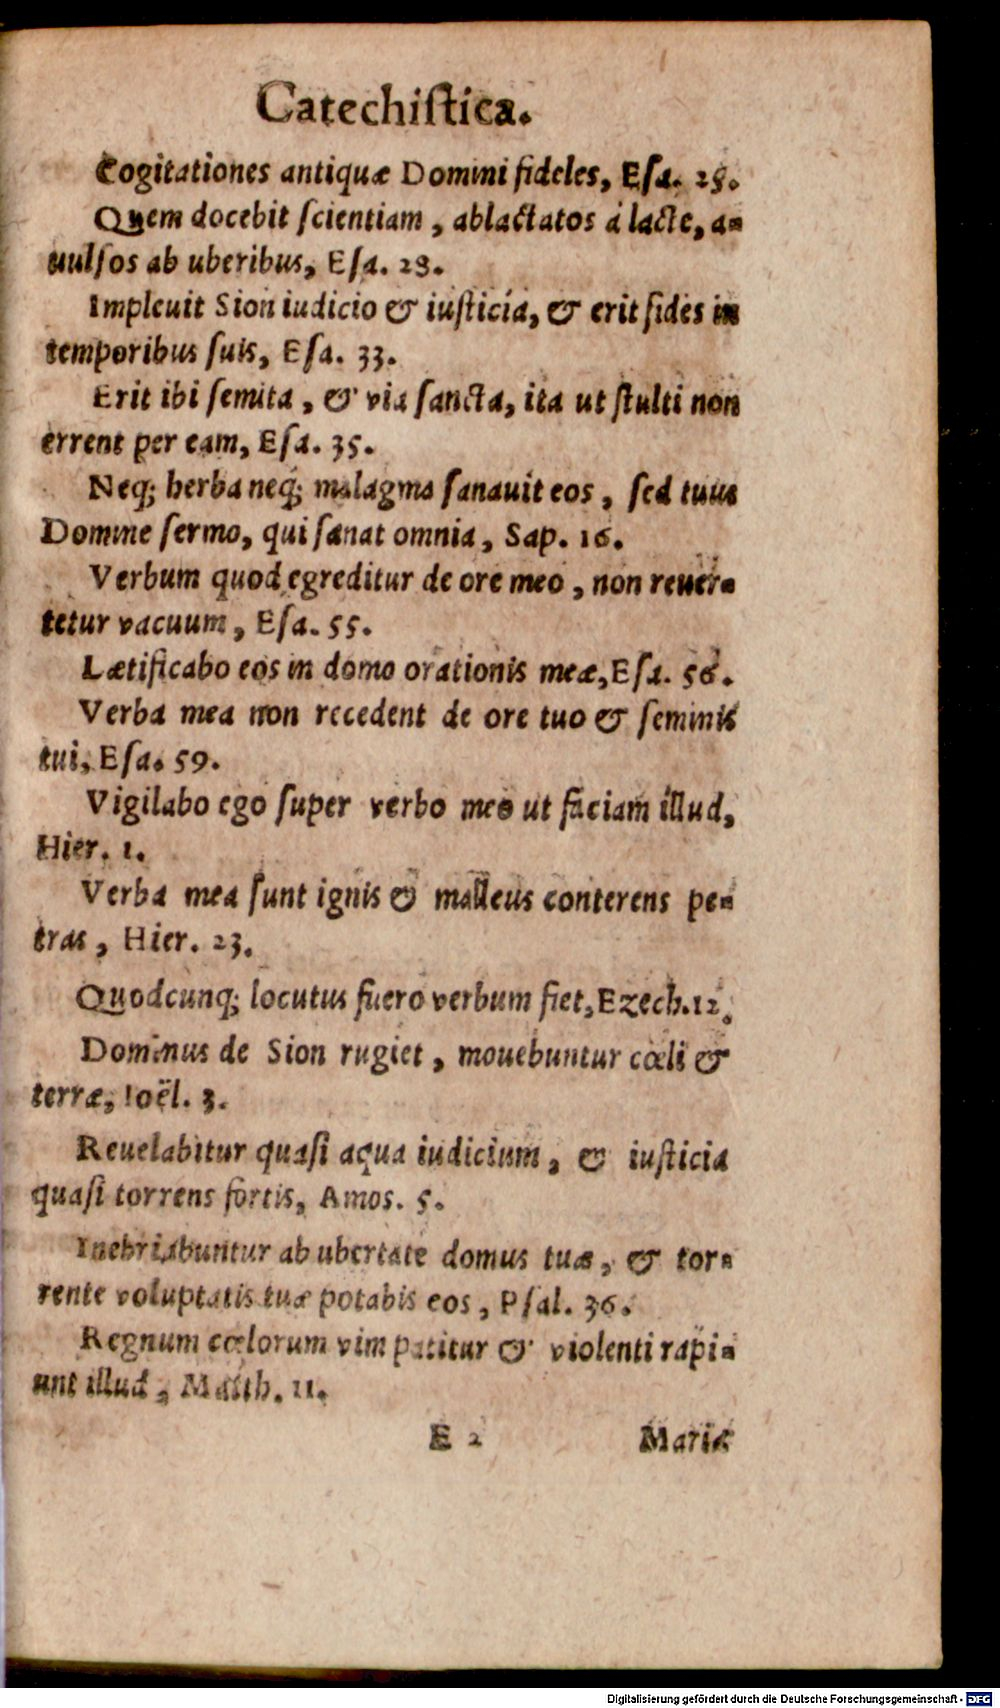 Catechiſtica.
Cogitationes antiquæ Domini fideles, Eſa. 25.
Quem docebit ſcientiam, ablactatos à lacte, a-
uulſos ab uberibus, Eſa. 28.
Impleuit Sion iudicio & iuſticia, & erit fides in
temporibus ſuis, Eſa. 33.
Erit ibi ſemita, & via ſancta, ita ut ſtulti non
errent per eam, Eſa. 35.
Neq; herba neq; malagma ſanauit eos, ſed tuus
Domine ſermo, qui ſanat omnia, Sap. 16.
Verbum quod egreditur de ore meo, non reuer-
tetur vacuum, Eſa. 55.
Lætificabo eos in domo orationis meæ, Eſa. 56.
Verba mea non recedent de ore tuo & ſeminis
tui, Eſa. 59.
Vigilabo ego ſuper verbo meo ut faciam illud,
Hier. 1.
Verba mea ſunt ignis & malleus conterens pe-
tras, Hier. 23.
Quodcunq; locutus fuero verbum fiet, Ezech. 12.
Dominus de Sion rugiet, mouebuntur cœli &
terræ, Ioël. 3.
Reuelabitur quaſi aqua iudicium, & iuſticia
quaſi torrens fortis, Amos. 5.
Inebriabuntur ab ubertate domus tuæ, & tor-
rente voluptatis tuæ potabis eos, Pſal. 36.
Regnum cœlorum vim patitur & violenti rapi-
unt illud, Matth. 11.
E 2 Mariæ
Digitalisierung gefördert durch die Deutsche Forschungsgemeinschaft - DFG